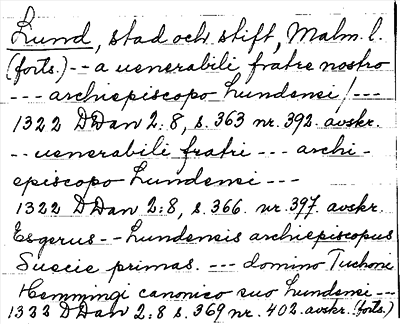 Lund, stad och stift, Malm. l.
(forts.) -- a uenerabili fratre nostro
--- archiepiscopo Lundensi /---
1322 DDan 2:8, s. 363 nr. 392. avskr.
-- uenerabili fratri --- archi-
episcopo Lundensi ---
1322 DDan 2:8, s. 366. nr. 397. avskr.
Esgerus -- Lundensis archiepiscopus
Suecie primas. --- domino Tuchone
Hemmingi canonico suo Lundensi ---
1322 DDan 2:8 s. 369 nr. 402. avskr. (forts.)